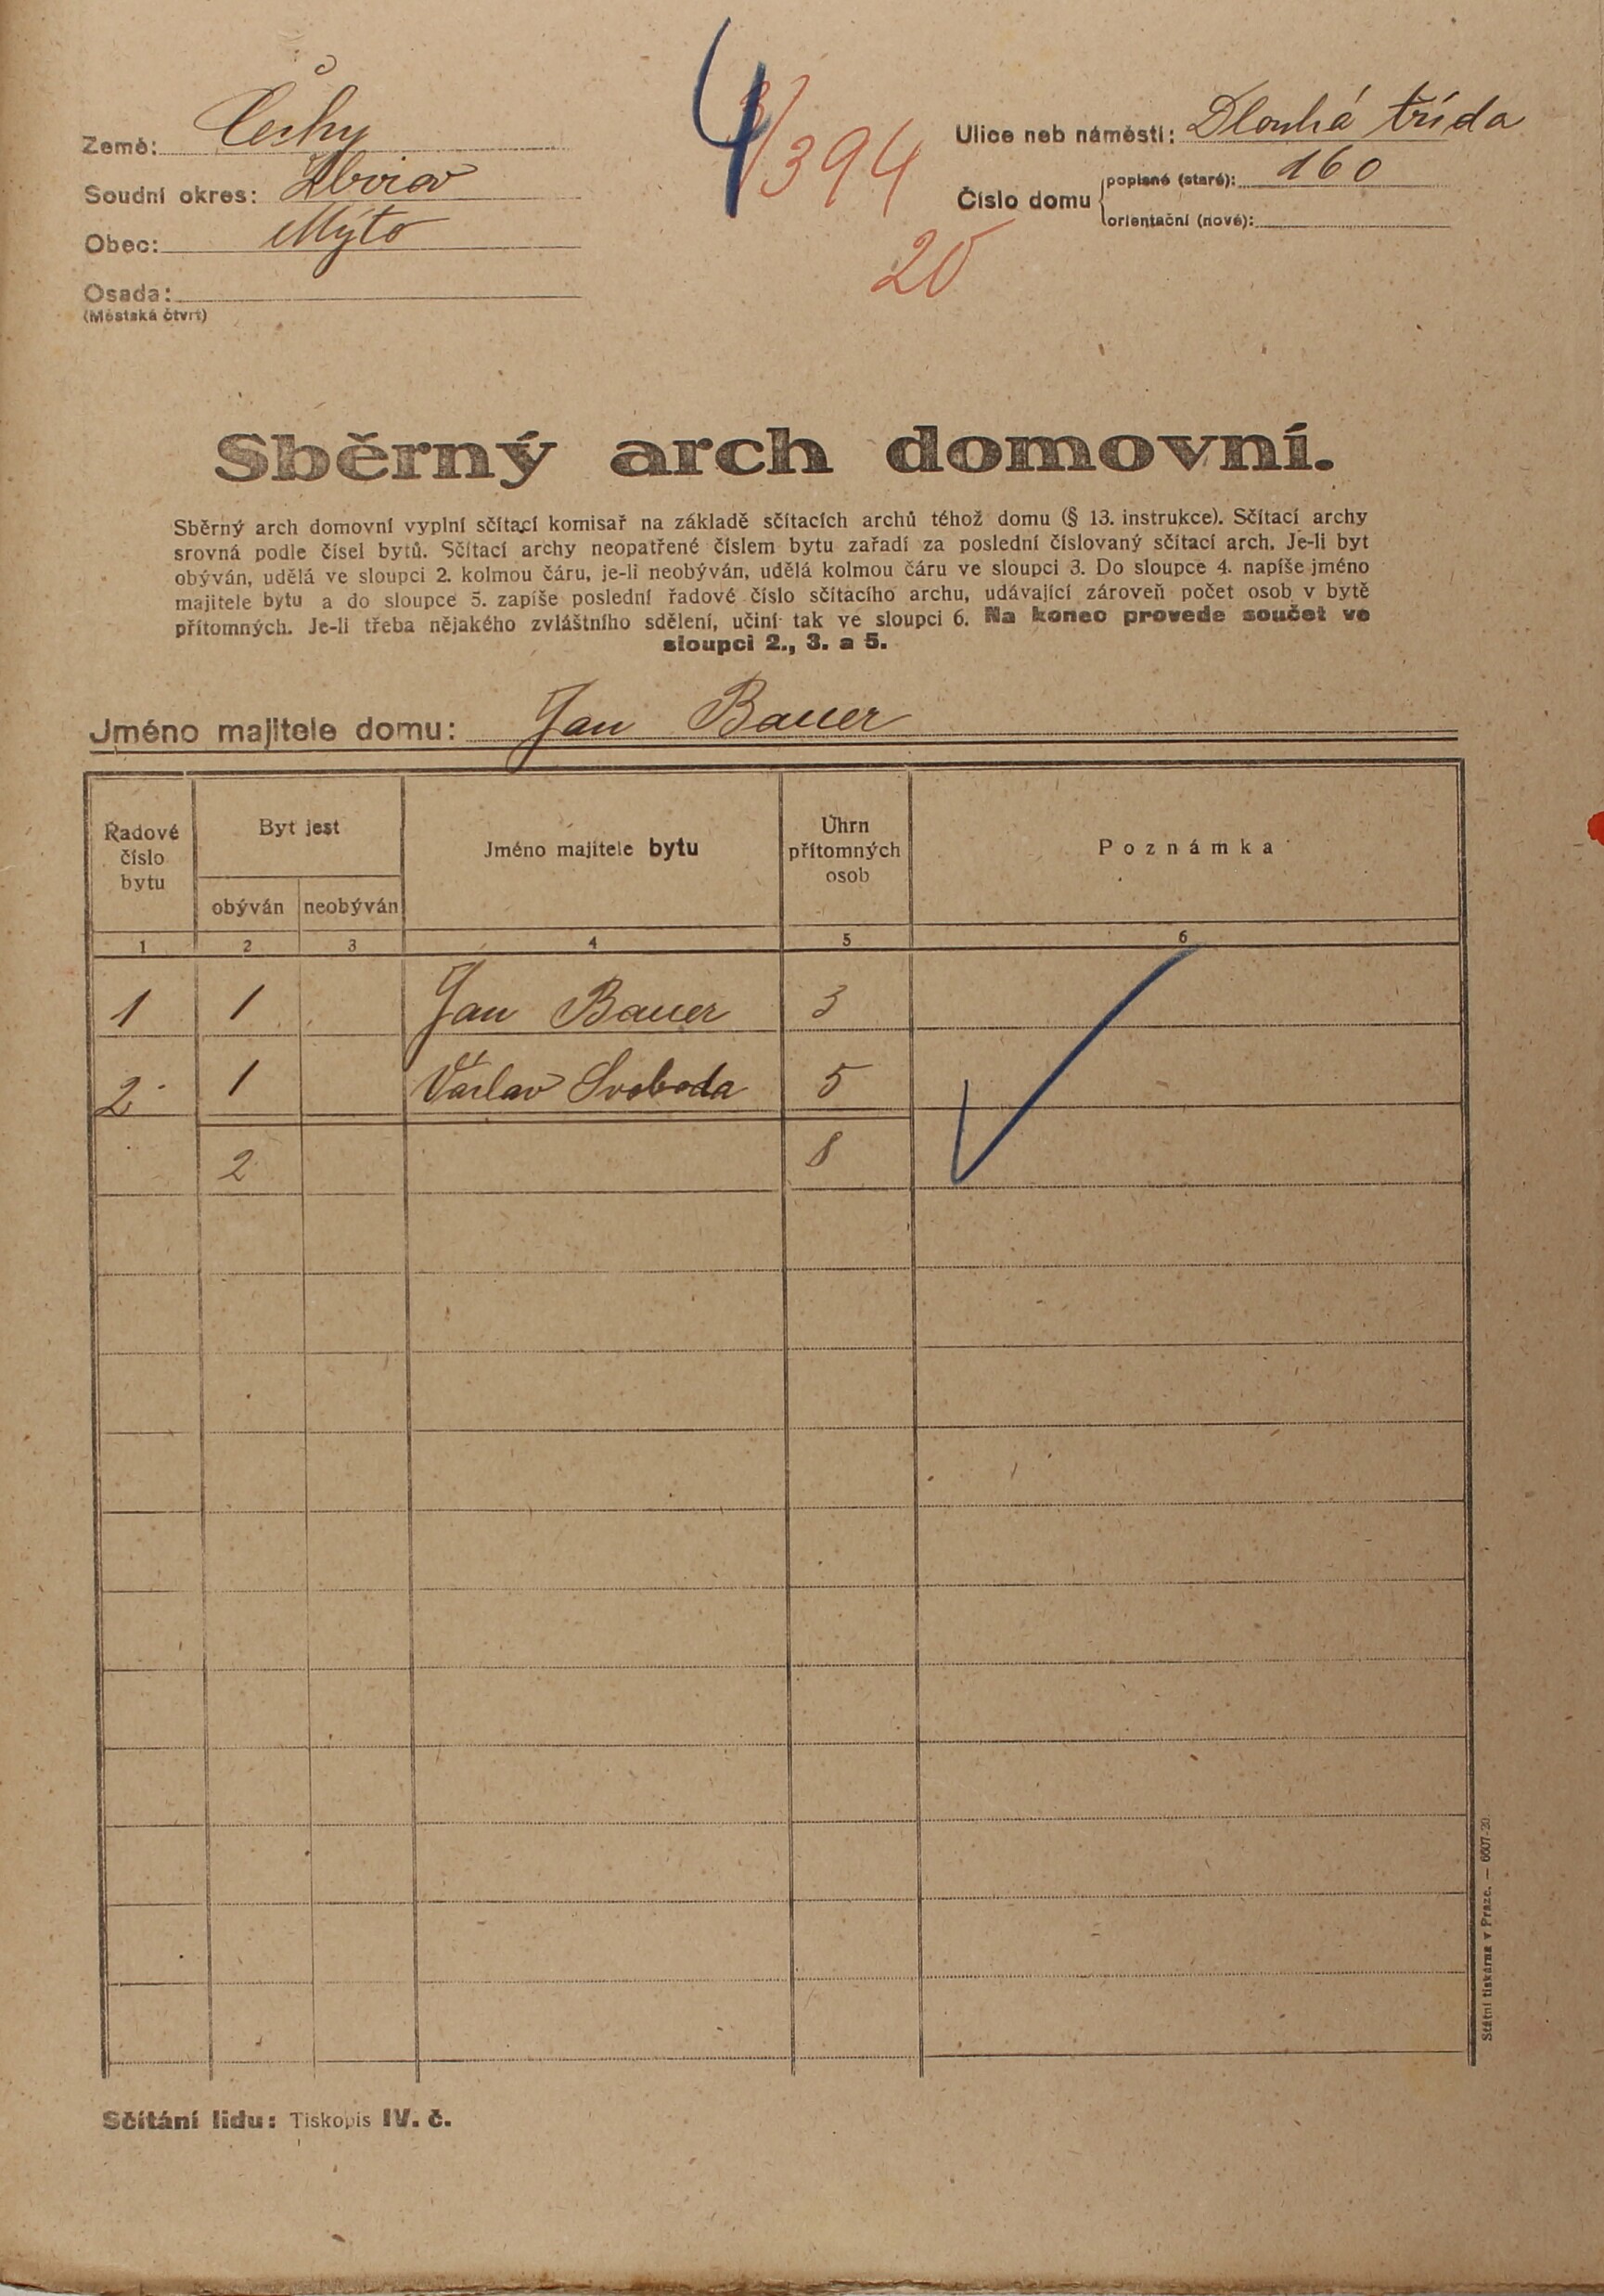 Země: Čechy
Soudní okres: Zbirov
Obec: Mýto
Osada:
(Městská čtvrt)
4
/394
20
Ulice neb náměstí: Dlouhá třída
Číslo domu
popisné (staré): 160
orientační (nové):
Sběrný arch domovní.
Sběrný arch domovní vyplní sčítací komisař na základě sčítacích archů téhož domu (§ 13. instrukce). Sčítací archy
srovná podle čísel bytů. Sčítací archy neopatřené číslem bytu zařadí za poslední číslovaný sčítací arch. Je-li byt
obýván, udělá ve sloupci 2. kolmou čáru, je-li neobýván, udělá kolmou čáru ve sloupci 3. Do sloupce 4. napíše jméno
majitele bytu a do sloupce 5. zapíše poslední řadové číslo sčítacího archu, udávající zároveň počet osob v bytě
přítomných. Je-li třeba nějakého zvláštního sdělení, učiní tak ve sloupci 6. Na konec provede součet ve
sloupci 2., 3. a 5.
Jméno majitele domu: Jan Bauer
Řadové číslo bytu
Byt jest
obýván neobýván
Jméno majitele bytu
Úhrn přítomných osob
Poznámka
1 2 3 4 5 6
1 1 Jan Bauer 3
2 1 Václav Svoboda 5
2 8
Sčítání lidu: Tiskopis IV. č.
Státní tiskárna v Praze. — 6607-20.